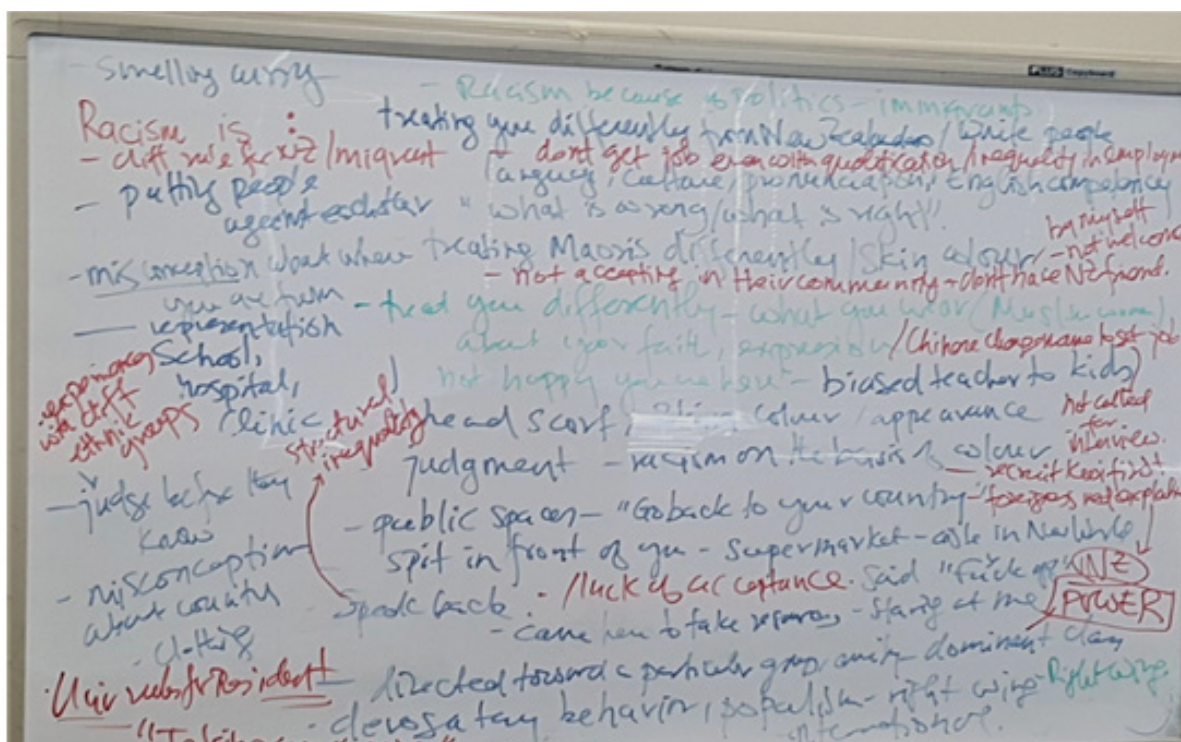 - smelling curry
PLUS Copyboard
- Racism because of Politics - immigrants
Racism is :
treating you differently from New Zealanders / white people
- diff rule for NZ / migrant
- dont get job even with qualification / inequality in employm
language, culture, pronunciation, English competency
- putting people
against each other
"what is wrong / what is right".
by myself
- misconception about where
treating Maoris differently / Skin colour
- not welcome
- not accepting in their community - dont have NZ friend.
you are from
- treat you differently - what you wear (Muslim women)
- representation
about your faith, expression
/ Chinese change name to get job
School,
hospital,
Clinic
not happy you are here"
- biased teacher to kids
experiences
with diff
ethnic
groups
structural
inequality
head scarf, colour / appearance
not called
for
interview.
judgment - racism on the basis of colour
- recruit Kiwi first
- judge before they
know
- public spaces - "Go back to your country"
- foreigners not
spit in front of you - Supermarket - in New
- misconception
about country
- clothing
- speak back.
- / luck of acceptance.
said "Fuck off"
NZ
- came here to take resources - staring at me
POWER
- rules for Resident
- directed toward a particular group dominent
- behavior, populism - right wing - Right wing
international.